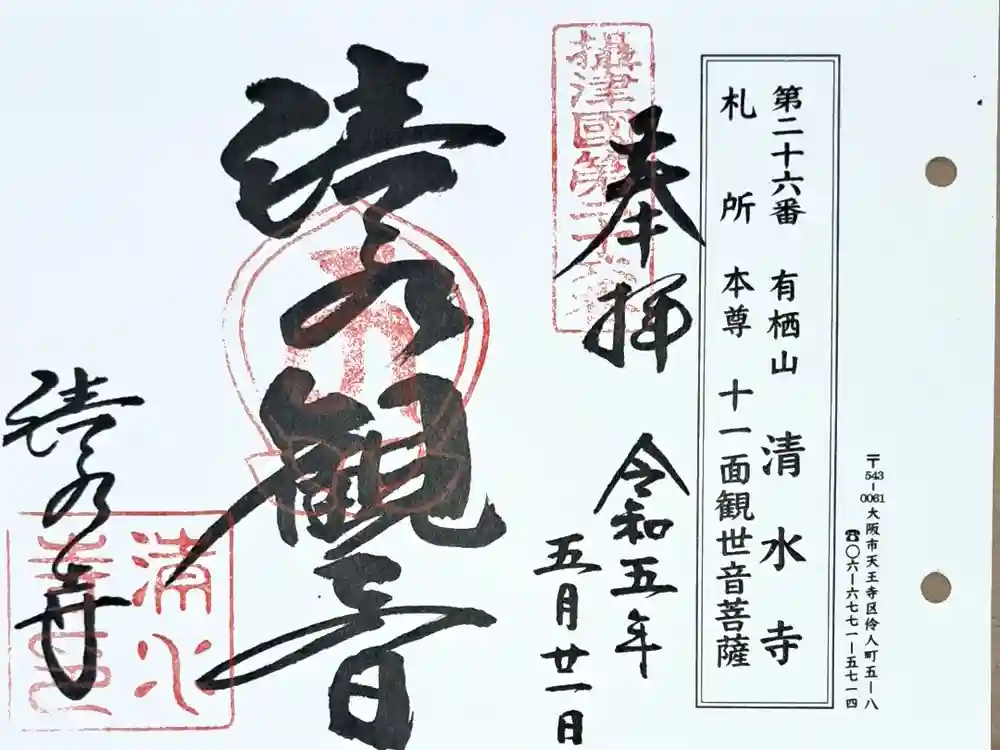 〒543-0061 大阪市天王寺区伶人町五ー八
☎〇六ー六七七一ー五七一四
第二十六番 有栖山 清水寺
札所 本尊 十一面観世音菩薩
奉拝 令和五年
五月廿一日
摂津國第二十六番
清水観音
清水寺
清水寺印